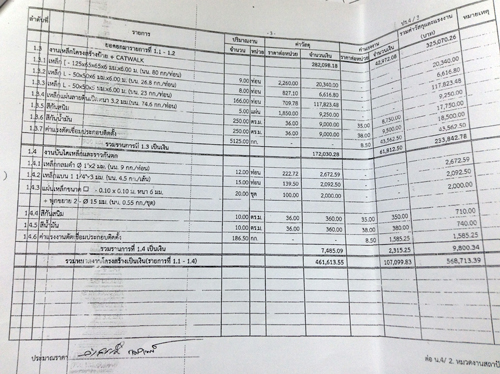 - 3 -
ปร.4 / 7
ลำดับที่ รายการ ปริมาณงาน ค่าวัสดุ ค่าแรงงาน รวมค่าวัสดุและแรงงาน หมายเหตุ
จำนวน หน่วย ราคาต่อหน่วย จำนวนเงิน จำนวนเงิน (บาท)
ยอดยกมารายการที่ 1.1 - 1.2 282,098.18 42,972.08 325,070.26
1.3 งานเหล็กโครงสร้างป้าย + CATWALK
1.3.1 เหล็ก [ - 125x65x6x6 มม.x6.00 ม. (นน. 80 กก/ท่อน) 9.00 ท่อน 2,260.00 20,340.00 20,340.00
1.3.2 เหล็ก L - 50x50x6 มม.x6.00 ม. (นน. 26.8 กก/ท่อน) 8.00 ท่อน 827.10 6,616.80 6,616.80
166.00 ท่อน 709.78 117,823.48 117,823.48
3.2 มม.(นน. 74.6 กก/ท่อน) 5.00 แผ่น 1,850.00 9,250.00 9,250.00
1.3.5 สีกันสนิม 250.00 ตร.ม. 36.00 9,000.00 35.00 8,750.00 17,750.00
1.3.6 สีน้ำมัน 250.00 ตร.ม. 36.00 9,000.00 38.00 9,500.00 18,500.00
1.3.7 ค่าแรงตัดเชื่อมประกอบติดตั้ง 5125.00 กก. 8.50 43,562.50 43,562.50
รวมรายการที่ 1.3 เป็นเงิน 172,030.28 61,812.50 233,842.78
1.4 งานบันไดเหล็กและราวกันตก
1.4.1 เหล็กกลมดำ Ø 1"x2 มม. (นน. 9 กก/ท่อน) 12.00 ท่อน 222.72 2,672.59 2,672.59
1.4.2 เหล็กแบน 1 1/4"x3 มม. (นน. 4.5 กก./เส้น) 15.00 ท่อน 139.50 2,092.50 2,092.50
1.4.3 แผ่นเหล็กขนาด □ - 0.10 x 0.10 ม. หนา 6 มม. 20.00 ชุด 100.00 2,000.00 2,000.00
+ พุกขยาย 2 - Ø 15 มม. (นน. 0.55 กก./ชุด)
1.4.4 สีกันสนิม 10.00 ตร.ม. 36.00 360.00 35.00 350.00 710.00
1.4.5 สีน้ำมัน 10.00 ตร.ม. 36.00 360.00 38.00 380.00 740.00
1.4.6 ค่าแรงงานตัดเชื่อมประกอบติดตั้ง 186.50 กก. 8.50 1,585.25 1,585.25
รวมรายการที่ 1.4 เป็นเงิน 7,485.09 2,315.25 9,800.34
461,613.55 107,099.83 568,713.39
ประมาณราคา
ต่อ น.4/ 2. หมวดงานสถาปั